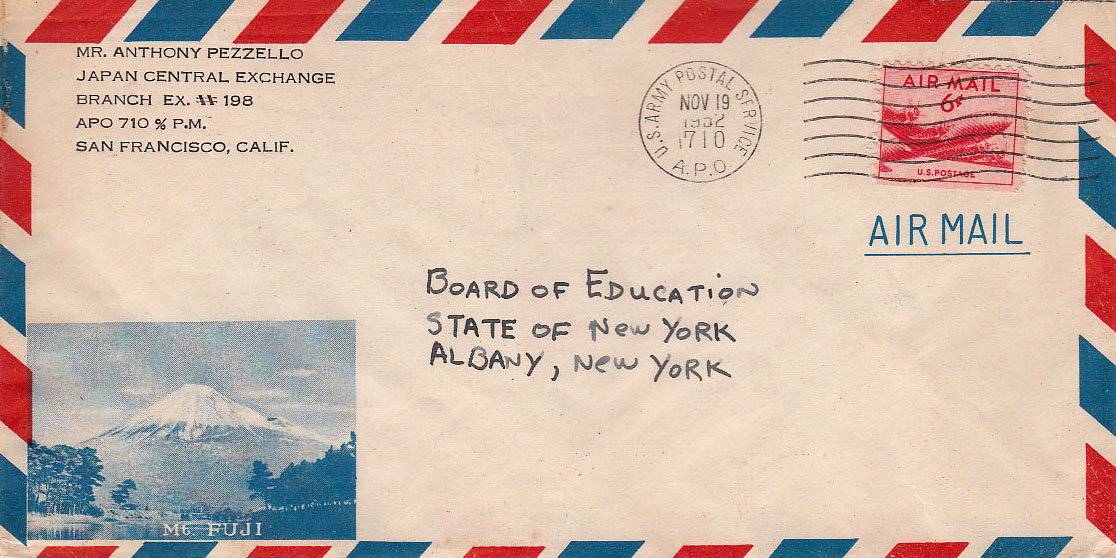 MR. ANTHONY PEZZELLO
JAPAN CENTRAL EXCHANGE
BRANCH EX. # 198
APO 710 % P.M.
SAN FRANCISCO, CALIF.
U.S. ARMY POSTAL SERVICE
NOV 19
1952
710
A.P.O.
AIR MAIL
6¢
U.S. POSTAGE
AIR MAIL
BOARD OF EDUCATION
STATE OF NEW YORK
ALBANY, NEW YORK
Mt. FUJI